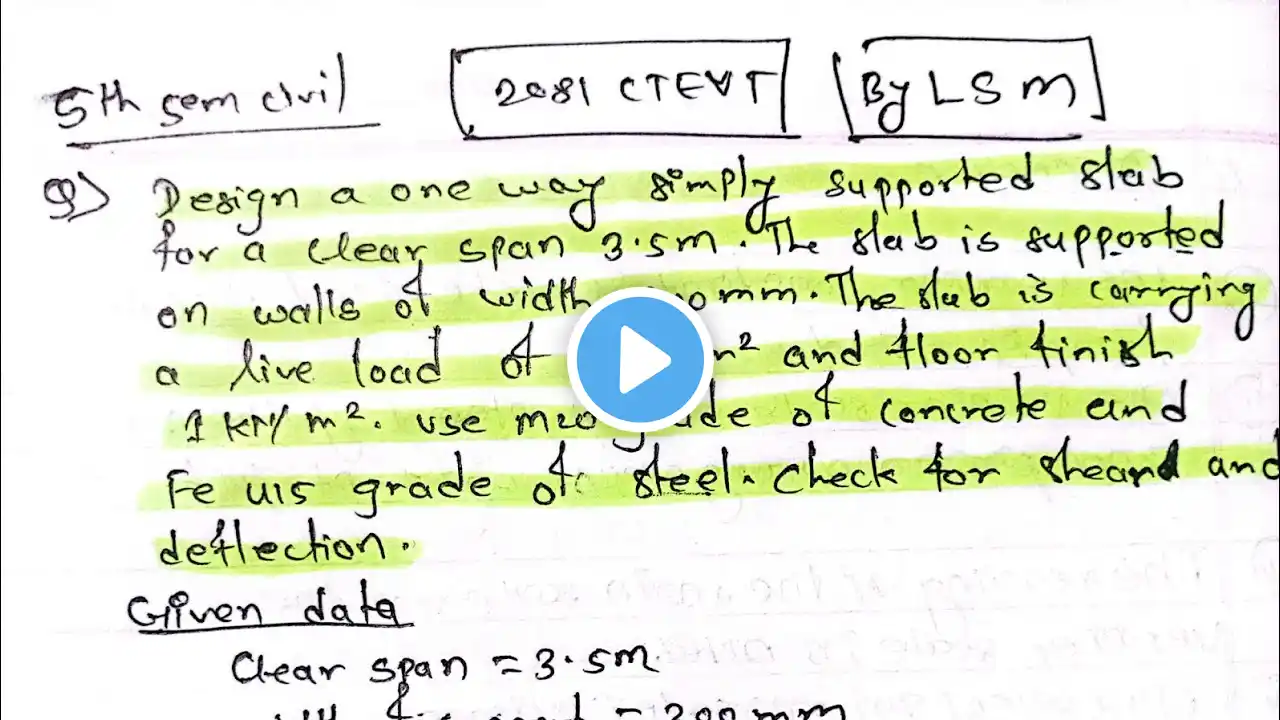 5th sem civil 2081 CTEVT By LSM
Q) Design a one way simply supported slab
for a clear span 3.5m. The slab is supported
on walls of width mm. The slab is carrying
a live load of m² and floor finish
1 KN/m². use M20 grade of concrete and
Fe 415 grade of steel. Check for shear and
deflection.
Given data
Clear span = 3.5m.
= 200mm